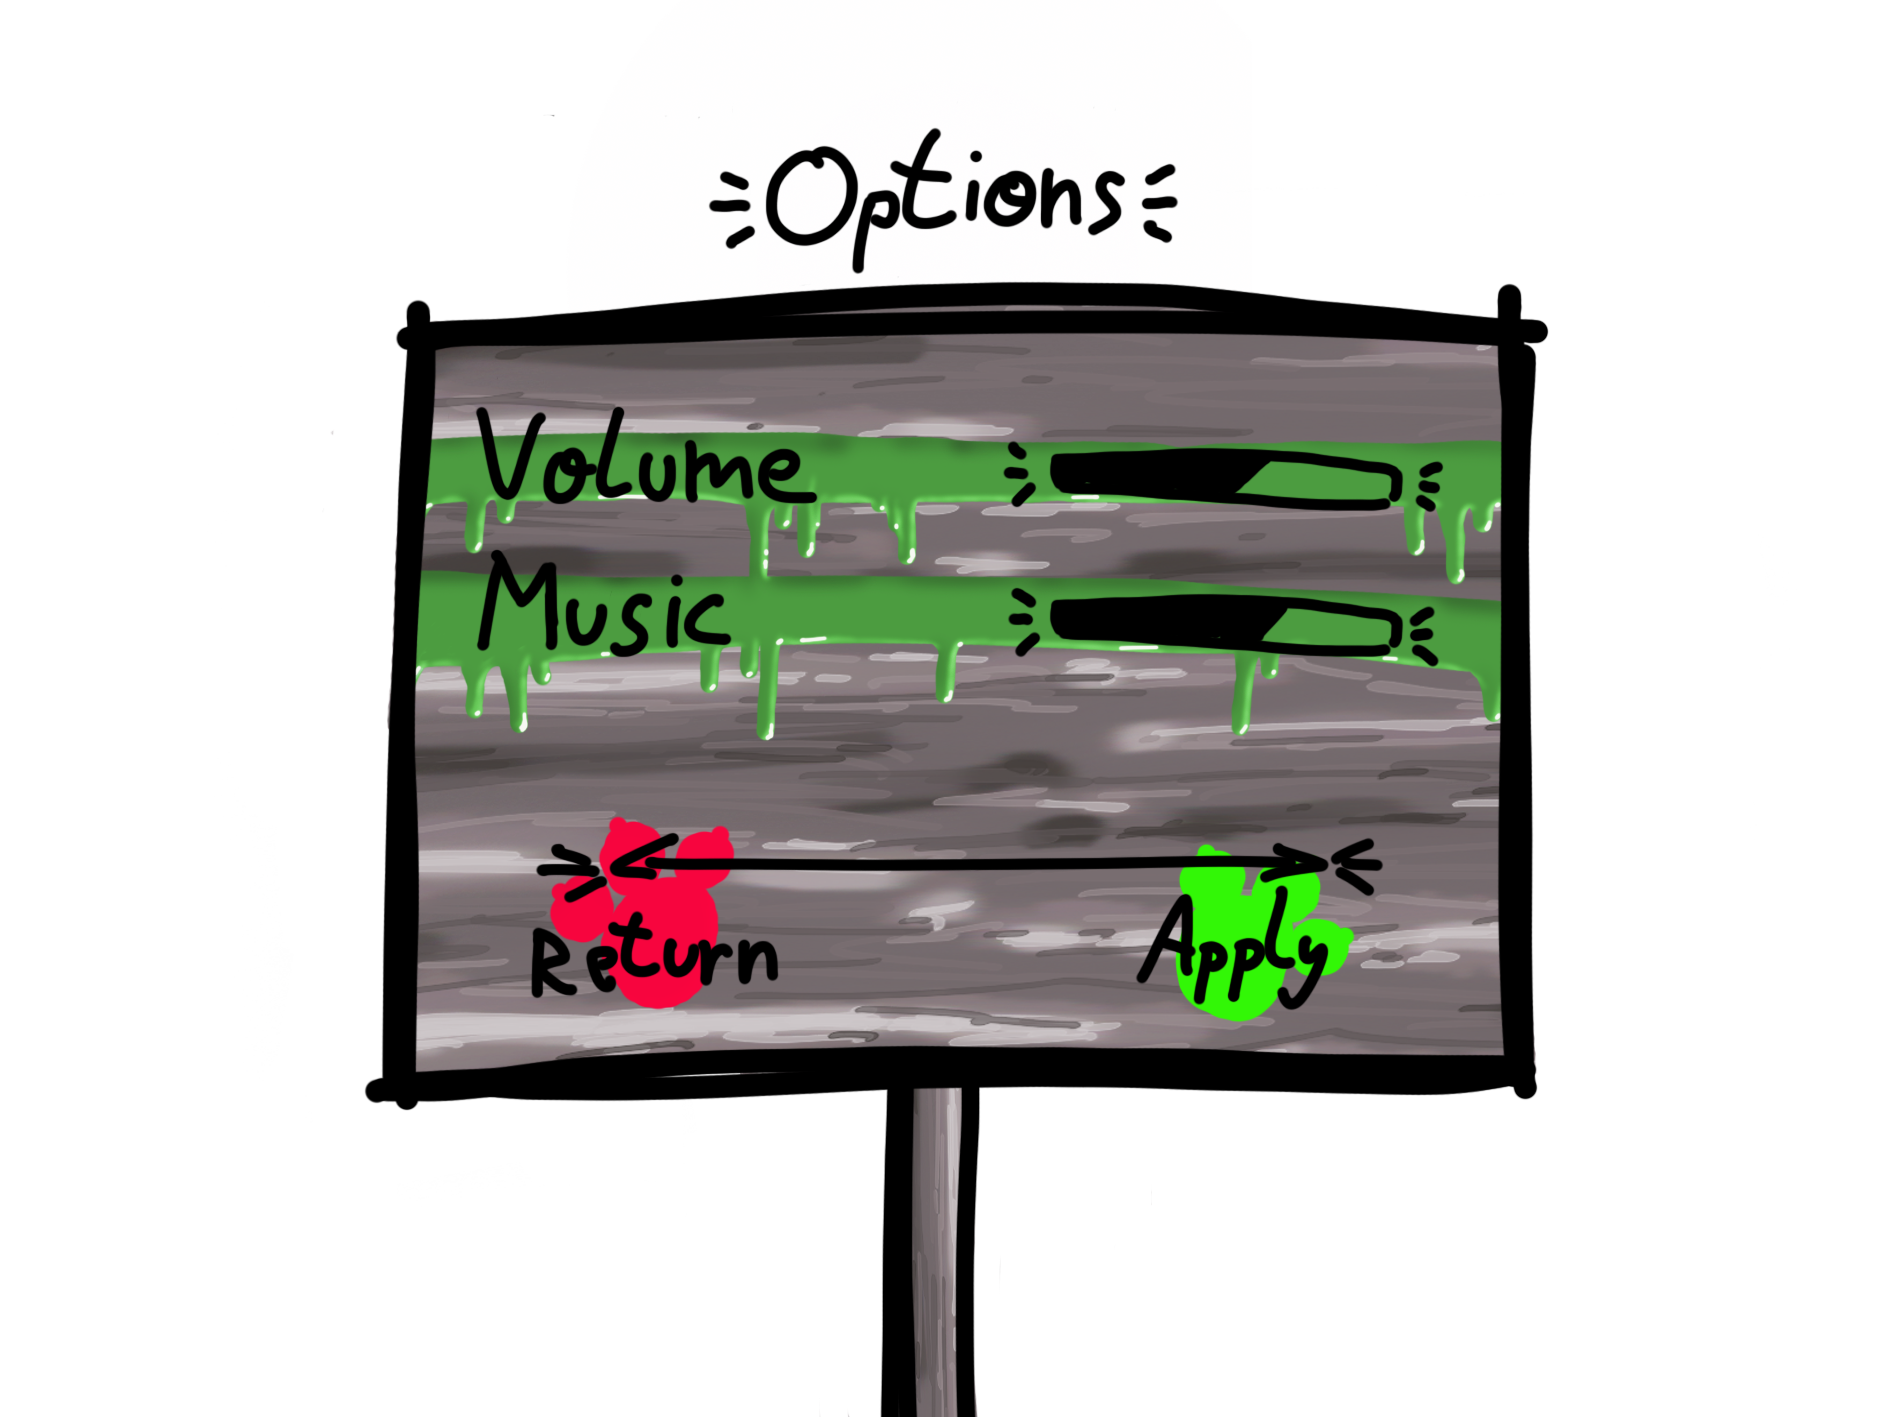 Options
Volume
Music
Return Apply